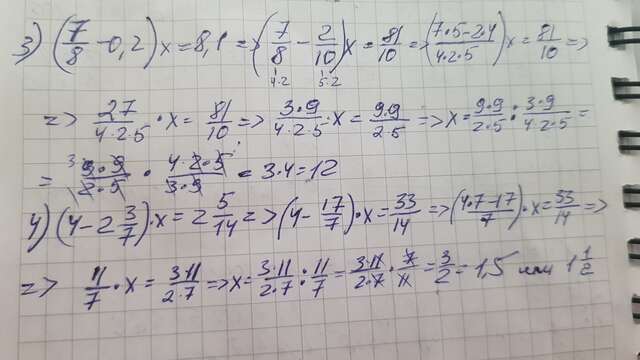 3) (7/8 - 0,2) x = 8,1 => (7/8 - 2/10) x = 81/10 => ((7·5-2·4)/(4·2·5)) x = 81/10 =>
4·2 5·2
=> 27/(4·2·5) · x = 81/10 => (3·9)/(4·2·5) · x = (9·9)/(2·5) => x = (9·9)/(2·5) : (3·9)/(4·2·5) =
= (9·9)/(2·5) · (4·2·5)/(3·9) = 3·4 = 12
4) (4 - 2 3/7) · x = 2 5/14 => (4 - 17/7) · x = 33/14 => ((4·7-17)/7) · x = 33/14 =>
=> 11/7 · x = (3·11)/(2·7) => x = (3·11)/(2·7) : 11/7 = (3·11)/(2·7) · 7/11 = 3/2 = 1,5 или 1 1/2